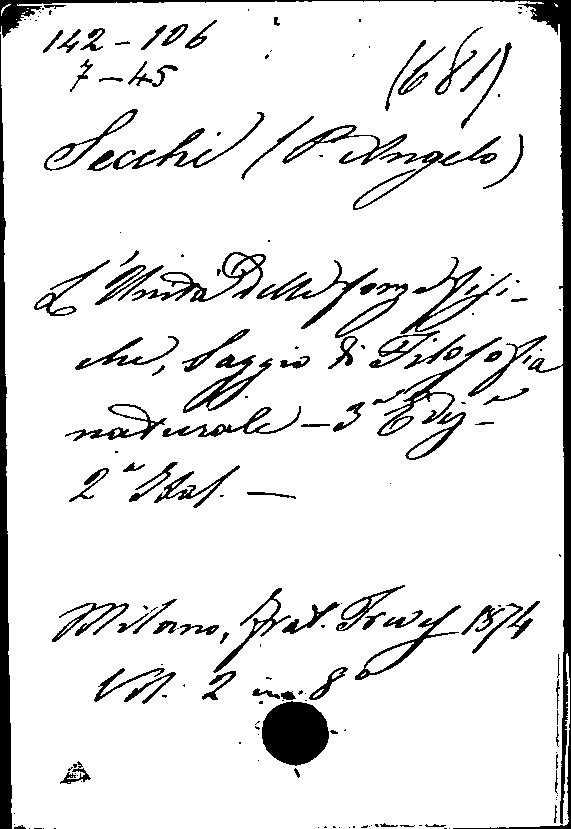 142-106
7-45
(681)
Secchi (P. Angelo)
L'Unità delle forze fisi-
che, Saggio di Filosofia
naturale - 3ª Ediz.ª
2ª Ital. —
Milano, frat. Treves 1874
Vol. 2 in 8º